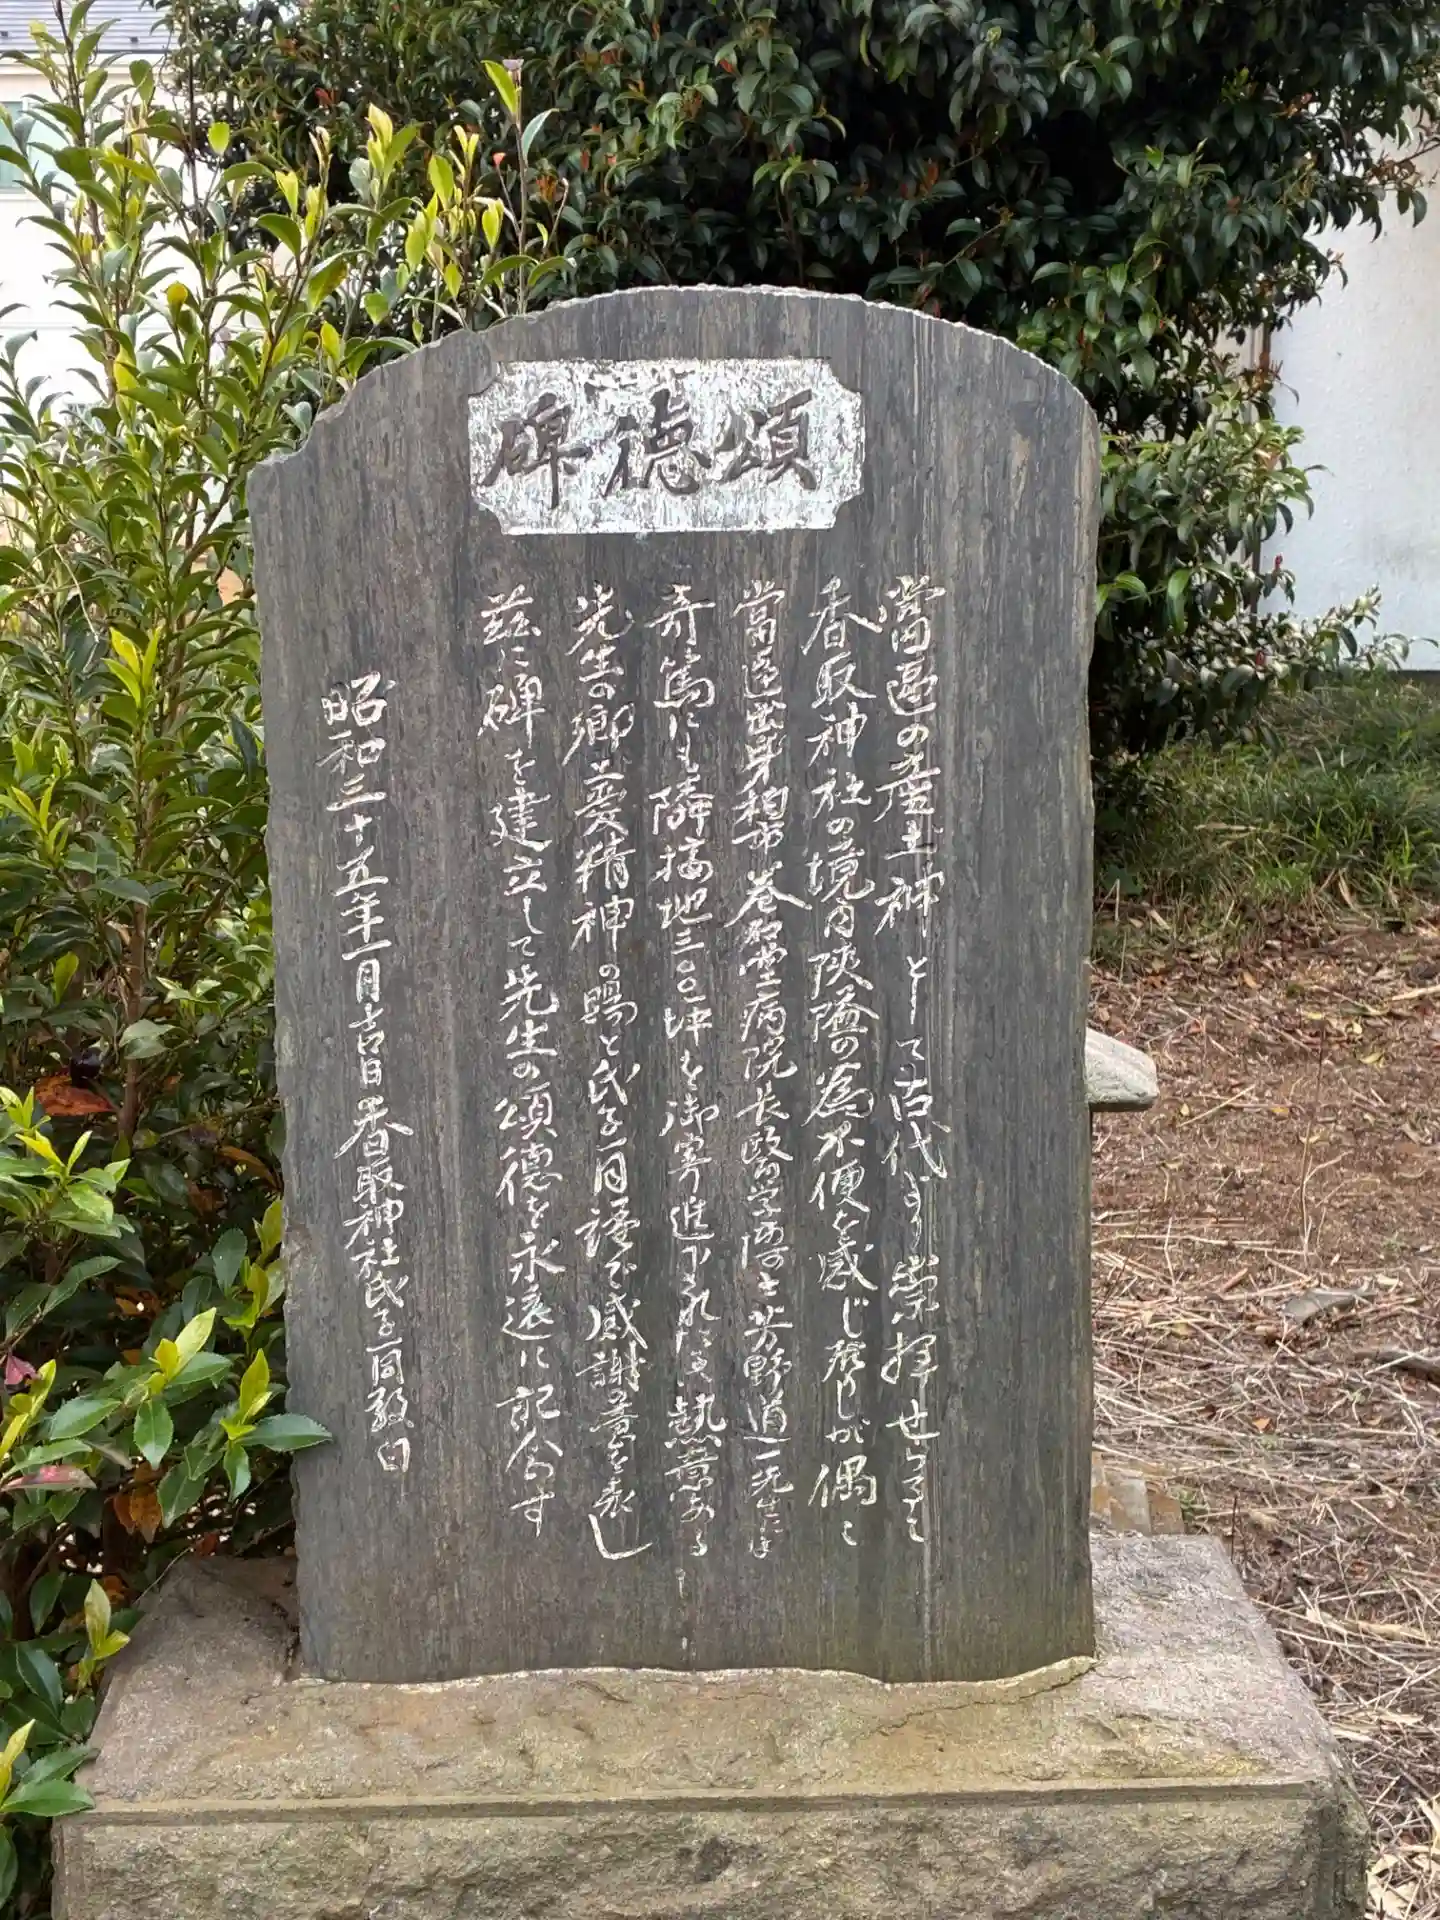 頌徳碑
當邉の産土神として古代より崇拝せらるゝ
香取神社の境内陜隘の為不便を感じ居りしが偶々
當邉出身柏市巻石堂病院長醫学博士芳野道一先生は
奇篤にも隣接地三〇坪を御寄進下されたり熱意ある
先生の郷土愛精神の賜と氏子一同謹で感謝の意を表し
茲に碑を建立して先生の頌徳を永遠に記念す
昭和三十五年一月吉日香取神社氏子一同敬白